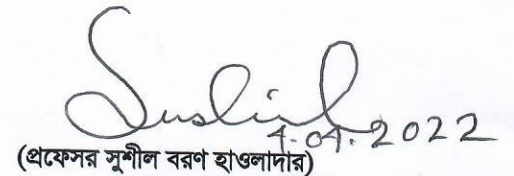 Sushil
4.04.2022
(প্রফেসর সুশীল বরণ হাওলাদার)